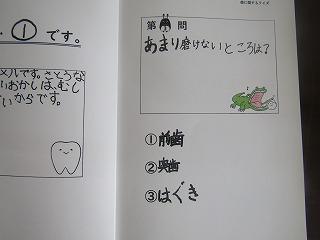 ・①です。
メルです。さとうな
いおかしは、むし
いからです。
歯に関するクイズ
第問
あまり磨けないところは?
①前歯
②奥歯
③はぐき